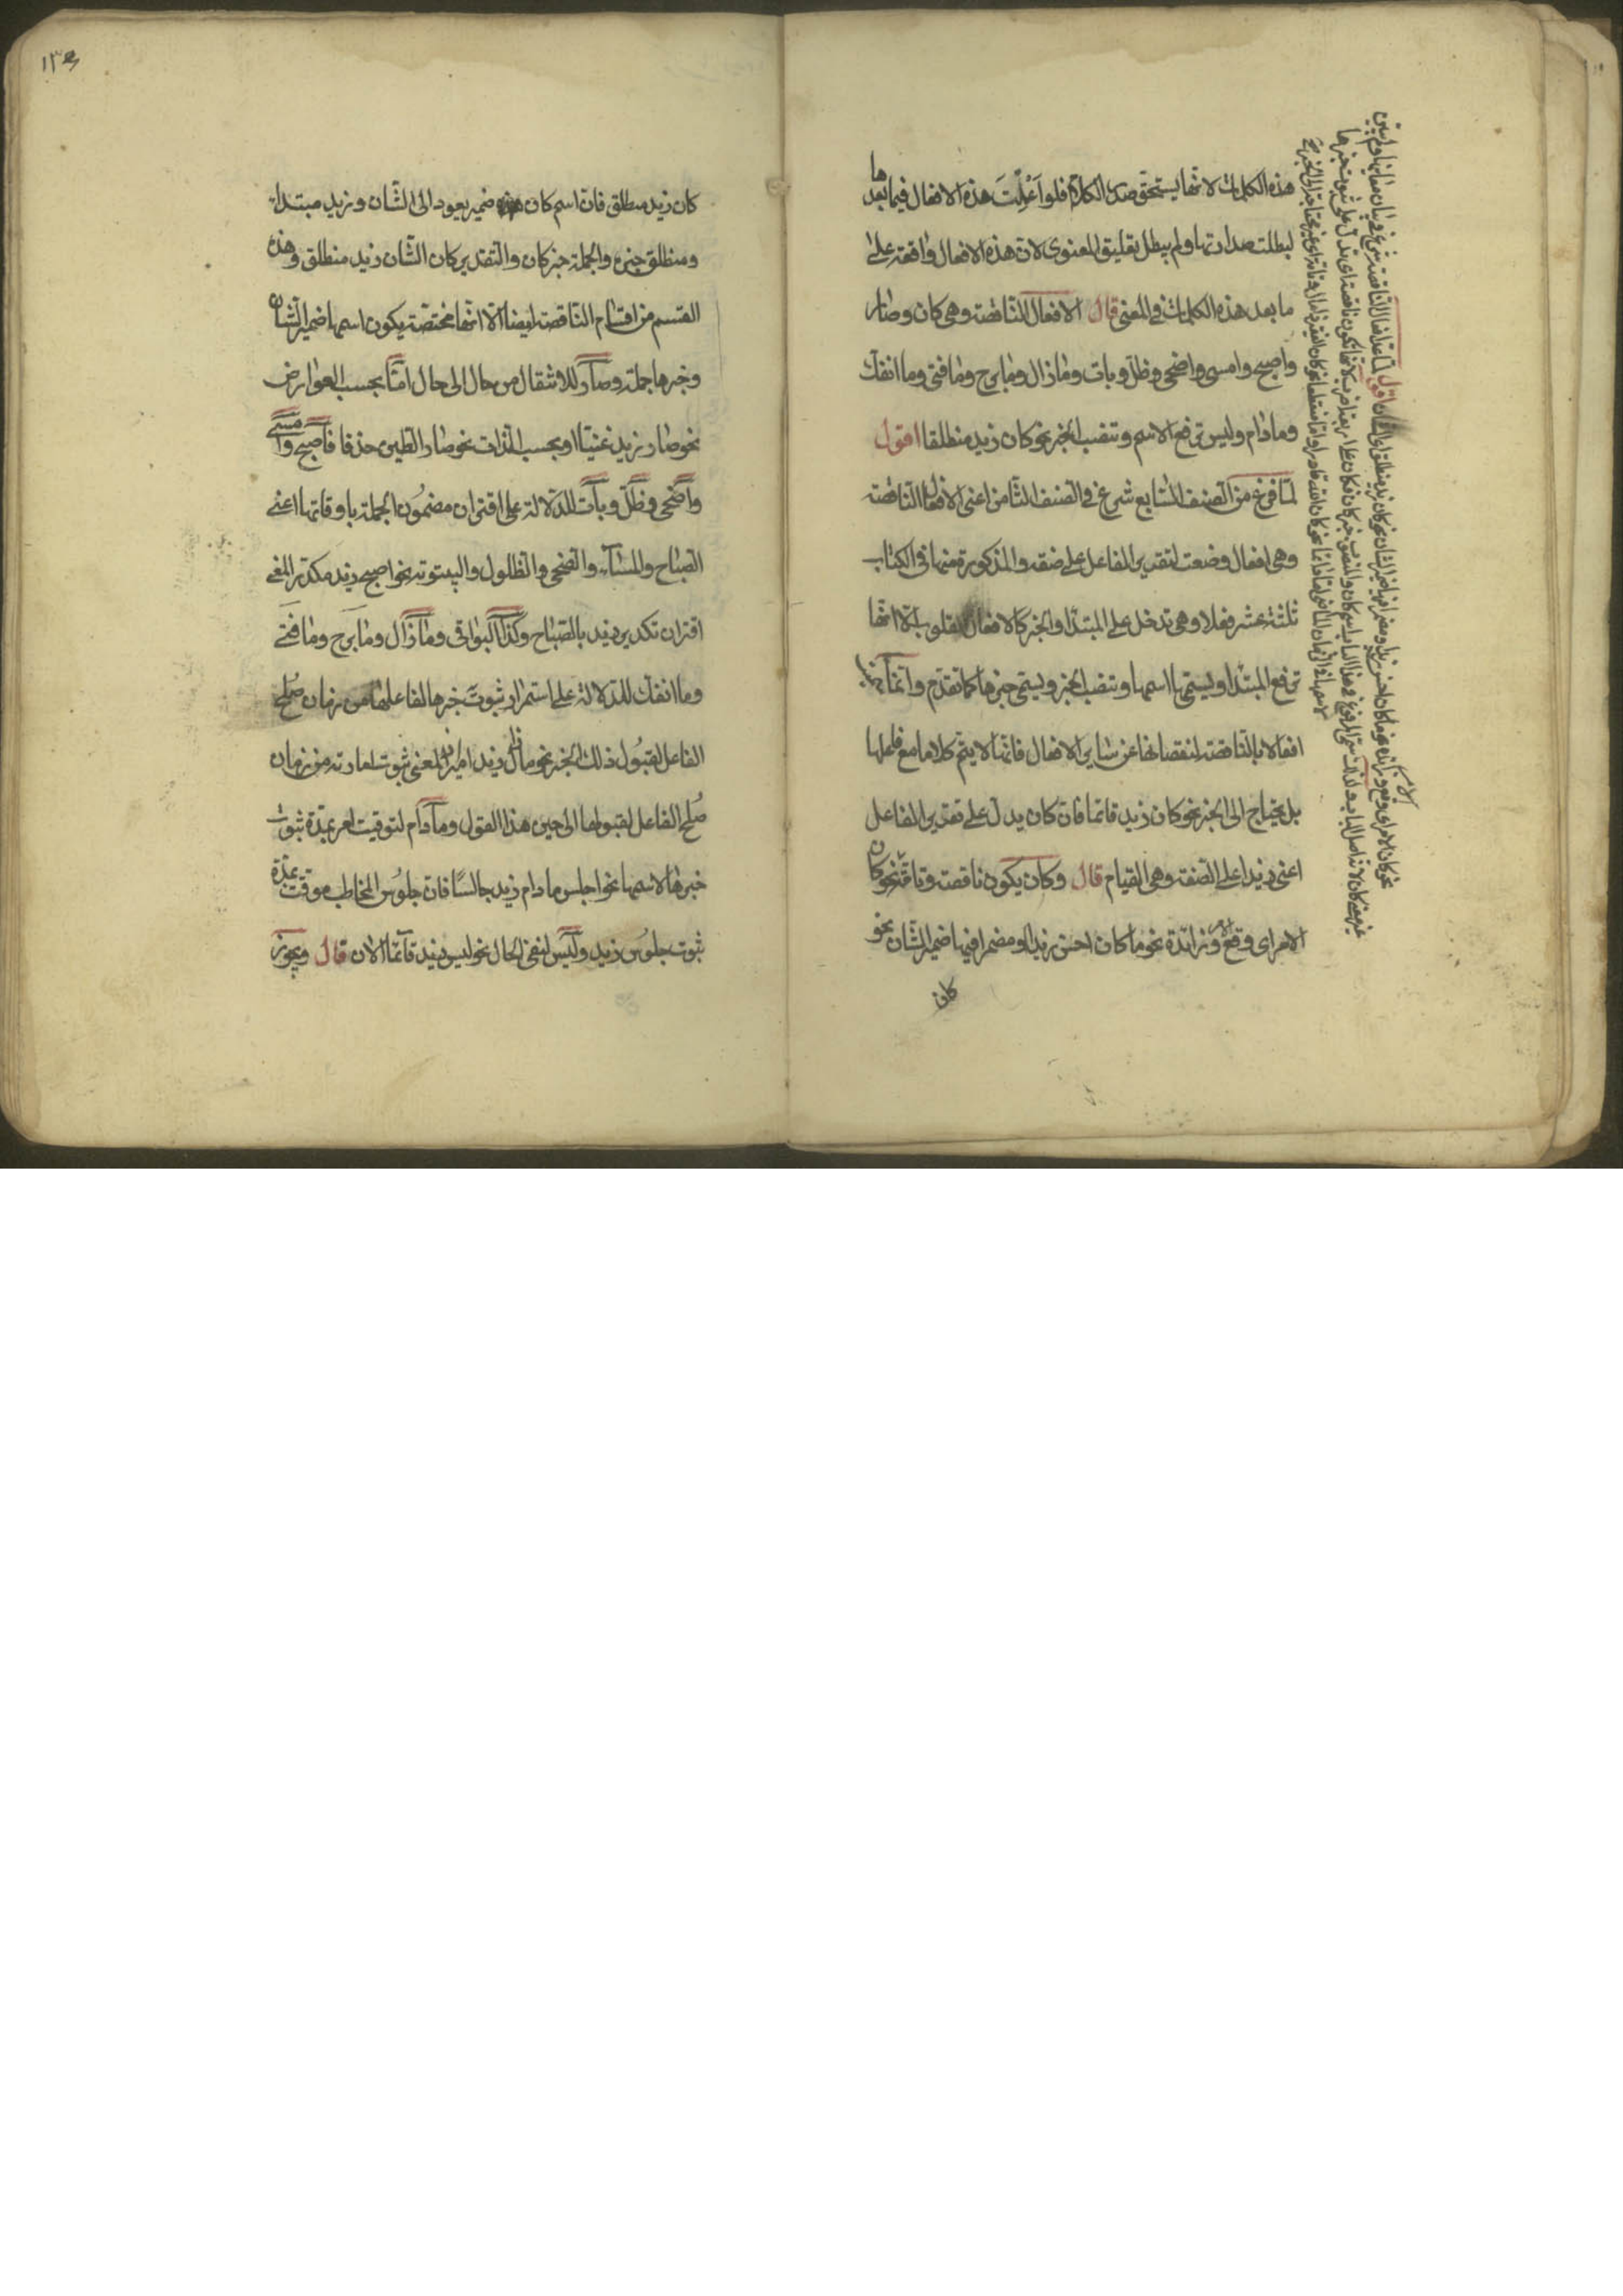 هذه الكلمات لانها يستحق صدر الكلام فلو اعملت هذه الافعال فيما بعدها
لبطلت صدارتها ولم يبطل تعليق المعنوى لان هذه الافعال واقعة على
ما بعد هذه الكلمات فى المعنى قال الافعال الناقصة وهى كان وصار
واصبح وامسى واضحى وظل وبات وما زال وما برح وما فتى وما انفك
وما دام وليس ترفع الاسم وتنصب الخبر نحو كان زيد منطلقا اقول
لما فرغ من الصنف السابع شرع فى الصنف الثامن اعنى الافعال الناقصة
وهى افعال وضعت لتقرير الفاعل على صفة والمذكورة منها فى الكتاب
ثلثة عشر فعلا وهى تدخل على المبتدا والخبر كالافعال القلوب الا انها
ترفع المبتدا ويسمى اسمها وتنصب الخبر ويسمى خبرها كما تقدم وانما
افعالا بالناقصة لنقصانها عن ساير الافعال فانها لا يتم كلاما مع فاعلها
بل يحتاج الى الخبر نحو كان زيد قائما فان كان يدل على تقرير الفاعل
اعنى زيدا على الصفة وهى القيام قال وكان يكون ناقصة وتامة نحو كان
الامر اى وقع الامر وزائدة نحو ما كان احسن زيدا ومضمرا فيها ضمير الشان نحو
كان
١٣٤
كان زيد منطلق فان اسم كان ضمير يعود الى الشان وزيد مبتدا
ومنطلق خبره والجملة خبر كان والتقدير كان الشان زيد منطلق وهذه
القسم من اقسام الناقصة ايضا الا انها مختصة يكون اسمها ضمير الشان
وخبرها جملة وصار للانتقال من حال الى حال اما بحسب العوارض
نحو صار زيد غنيا او بحسب الذات نحو صار الطين خذفا فاصبح وامسى
واضحى وظل وبات للدلالة على اقتران مضمون الجملة باوقاتها اعنى
الصباح والمساء والضحى والظلول والبيتوتة نحو اصبح زيد مكدر المعنى
اقتران تكدير زيد بالصباح وكذا البواقى وما زال وما برح وما فتى
وما انفك للدلالة على استمرار ثبوت خبرها لفاعلها من زمان صلح
الفاعل لقبول ذلك الخبر نحو ما زال زيد اميرا المعنى ثبوت امارته من زمان
صلح الفاعل لقبولها الى حين هذا القول وما دام لتوقيت امر بمدة ثبوت
خبرها لاسمها نحو اجلس ما دام زيد جالسا فان جلوس المخاطب موقت بمدة
ثبوت جلوس زيد وليس لنفى الحال نحو ليس زيد قائما الان قال ويجوز